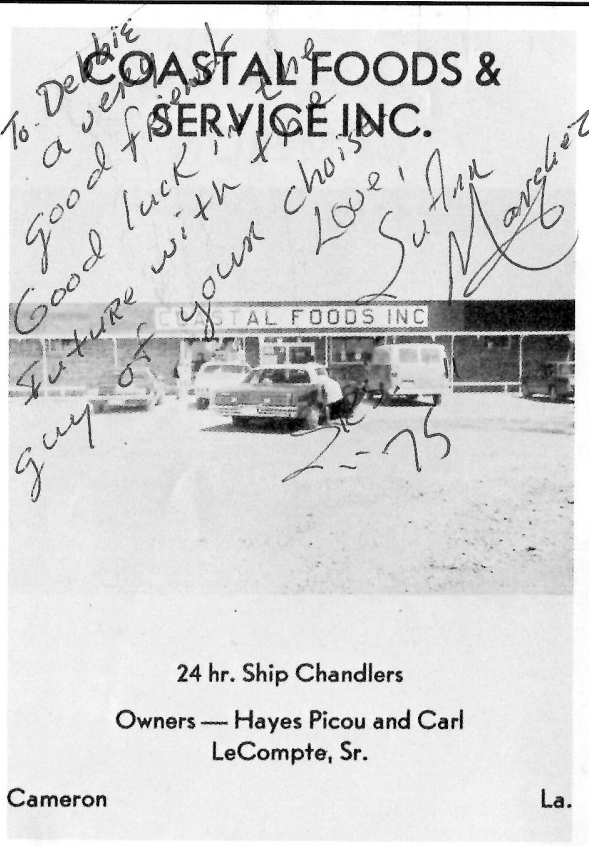 COASTAL FOODS &
SERVICE INC.
To Debbie
a very
good friend
Good luck in the
Future with the
guy of your choise
Love,
SuAnn
COASTAL FOODS INC
-75
24 hr. Ship Chandlers
Owners — Hayes Picou and Carl
LeCompte, Sr.
Cameron La.